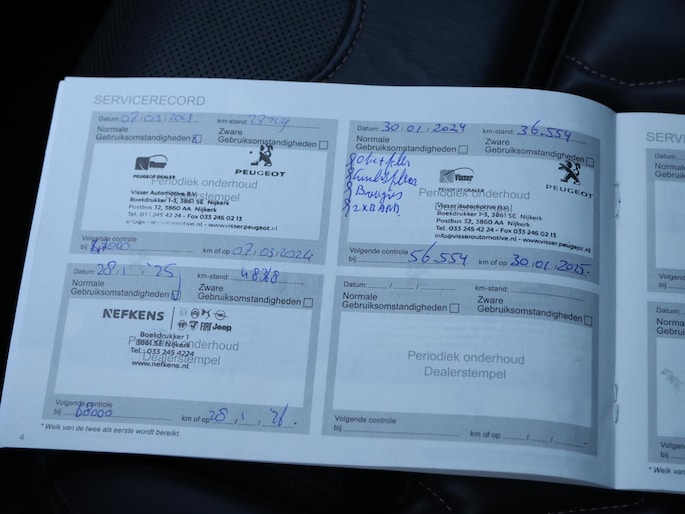 SERVICERECORD
Datum: 07.03.2023 km-stand: 27724
Normale Gebruiksomstandigheden
Zware Gebruiksomstandigheden
Visser
PEUGEOT DEALER
PEUGEOT
Periodiek onderhoud
Dealerstempel
Visser Automotive B.V.
Boekdrukker 1-3, 3861 SE Nijkerk
Postbus 32, 3860 AA Nijkerk
Tel. 033 245 42 24 - Fax 033 246 02 13
info@visserautomotive.nl - www.visser.peugeot.nl
Volgende controle
bij km of op 07.03.2024
Datum: 30.01.2024 km-stand: 36.554
Normale Gebruiksomstandigheden
Zware Gebruiksomstandigheden
Visser
PEUGEOT DEALER
PEUGEOT
Periodiek onderhoud
Dealerstempel
Visser Automotive B.V.
Boekdrukker 1-3, 3861 SE Nijkerk
Postbus 32, 3860 AA Nijkerk
Tel. 033 245 42 24 - Fax 033 246 02 13
info@visserautomotive.nl - www.visser.peugeot.nl
Volgende controle
bij 56.554 km of op 30.01.2025.
Datum: 28.1.'25 km-stand:
Normale Gebruiksomstandigheden
Zware Gebruiksomstandigheden
NEFKENS
FIAT Jeep
Periodiek onderhoud
Dealerstempel
Boekdrukker 1
3861 SE Nijkerk
Tel.: 033 245 4224
www.nefkens.nl
Volgende controle
bij 68000 km of op 28.1.26.
Datum: / /
km-stand:
Normale Gebruiksomstandigheden
Zware Gebruiksomstandigheden
Periodiek onderhoud
Dealerstempel
Volgende controle
bij km of op / /
* Welk van de twee als eerste wordt bereikt.
4
SERVI
Datum:
Norma
Gebru
Volgende
bij
Datum:
Norma
Gebru
Volgende
bij
* Welk va